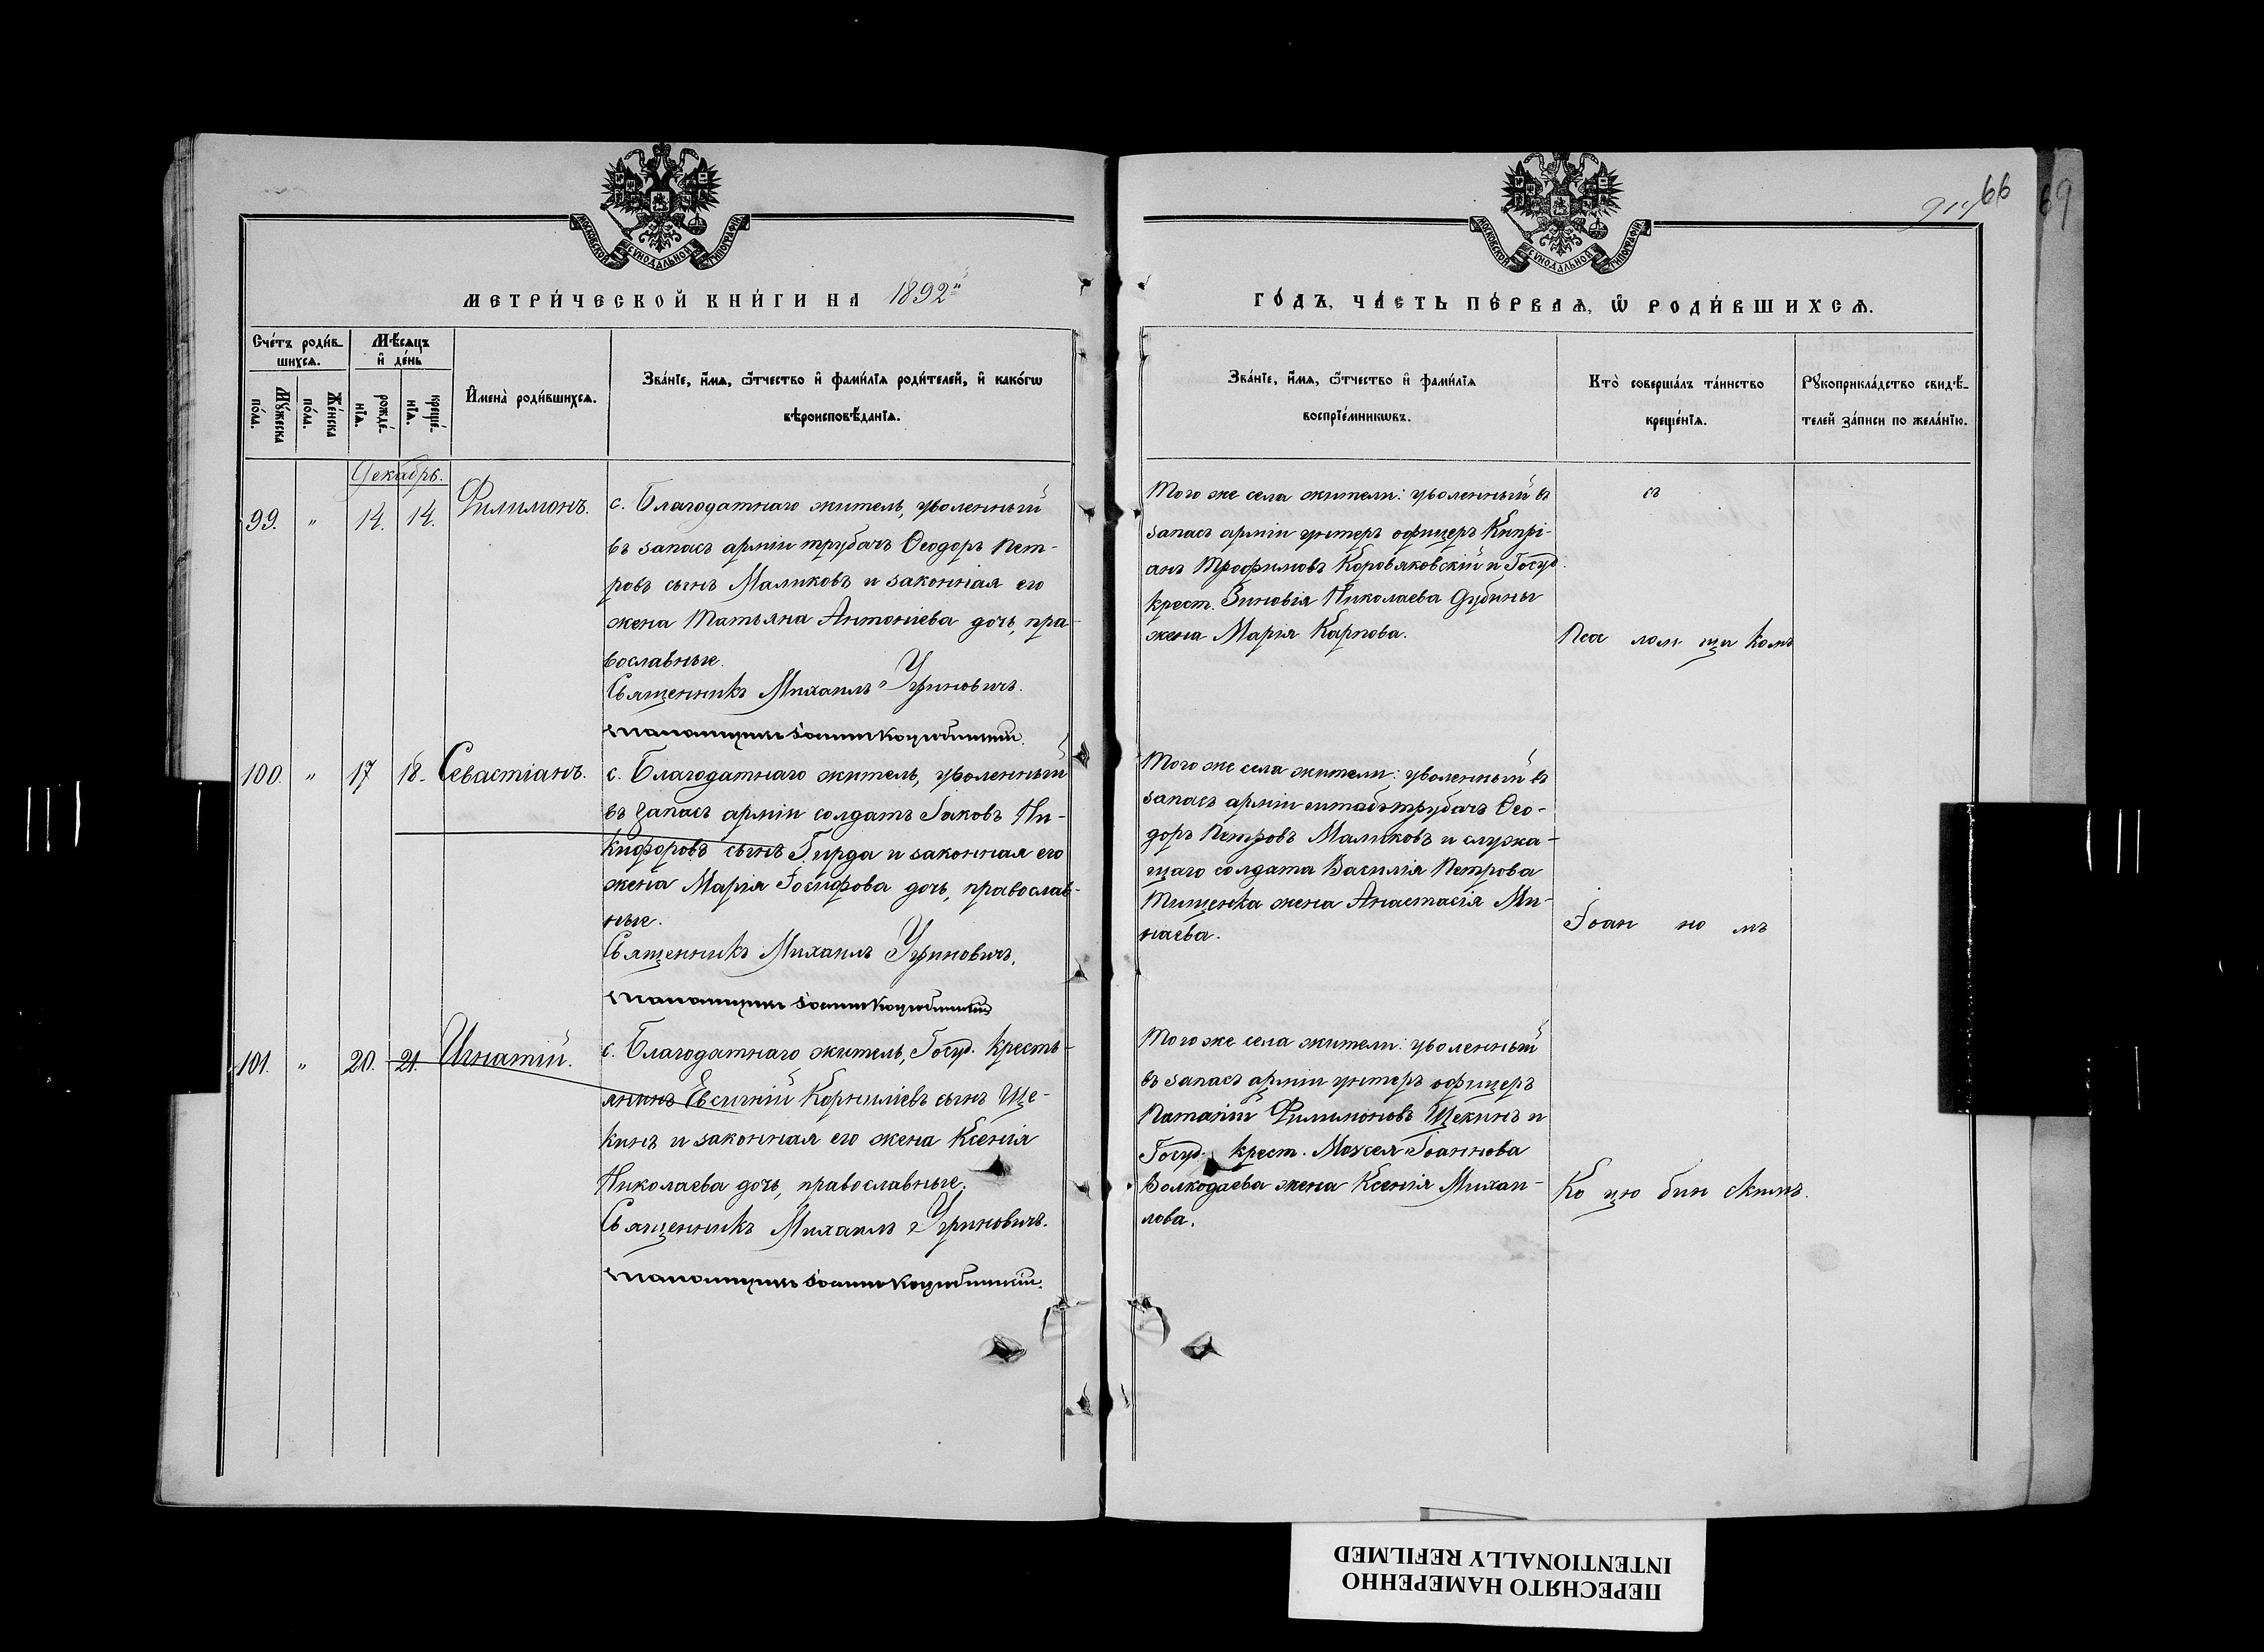 66
914
69
МОСКОВСКОЙ СѴНОДАЛЬНОЙ ТИПОГРАФІИ
МОСКОВСКОЙ СѴНОДАЛЬНОЙ ТИПОГРАФІИ
МЕТРИ́ЧЕСКОЙ КНИ́ГИ НА 1892й
Сче́тъ роди́в-
шихсѧ.
Мꙋ́жеска
по́ла.
Же́нска
по́ла.
Мѣ́сѧцъ
и҆ де́нь
рожде́-
нїѧ.
креще́-
нїѧ.
И҆мена̀ роди́вшихсѧ.
Зва́нїе, и҆́мѧ, ѻ҆́тчество и҆ фами́лїѧ роди́телей, и҆ како́гѡ
вѣроисповѣ́данїѧ.
Декабрь.
99. " 14. 14. Филимонъ.
с. Благодатнаго житель, уволенный
въ запасъ арміи трубачъ Ѳеодоръ Пет-
ровъ сынъ Маликовъ и законная его
жена Татьяна Антоніева дочь, пра-
вославные.
Священникъ Михаилъ Угриновичъ.
Псаломщикъ Іоаннъ Коцюбинскій.
100. " 17 18. Севастіанъ.
с. Благодатнаго житель, уволенный
въ запасъ арміи солдатъ Іаковъ Ни-
кифоровъ сынъ Гирда и законная его
жена Марія Іосифова дочь, православ-
ные.
Священникъ Михаилъ Угриновичъ.
Псаломщикъ Іоаннъ Коцюбинскій
101. " 20. 21. Игнатій.
с. Благодатнаго житель, Госуд. кресть-
янинъ Евсигній Корниліевъ сынъ Ще-
кинъ и законная его жена Ксенія
Николаева дочь, православные.
Священникъ Михаилъ Угриновичъ.
Псаломщикъ Іоаннъ Коцюбинскій.
ГО́ДЪ, ЧА́СТЬ ПЕ́РВАѦ, Ѡ҆ РОДИ́ВШИХСѦ.
Зва́нїе, и҆́мѧ, ѻ҆́тчество и҆ фами́лїѧ
воспрїе́мникѡвъ.
Кто̀ соверша́лъ та́инство
креще́нїѧ.
Рꙋкоприкла́дство свидѣ́-
телей за́писи по жела́нїю.
Того же села жители: уволенный въ
запасъ арміи унтеръ офицеръ Кипрі-
анъ Трофимовъ Коровяковскій и Госуд.
крест. Зиновія Николаева Дубины
жена Марія Карпова.
съ
Пса лом щи комъ
Того же села жители: уволенный въ
запасъ арміи штабъ трубачъ Ѳео-
доръ Петровъ Маликовъ и служа-
щаго солдата Василія Петрова
Тищенка жена Анастасія Ми-
наева.
Іоан но мъ
Того же села жители: уволенный
въ запасъ арміи унтеръ офицеръ
Потапій Филимоновъ Щекинъ и
Госуд. крест. Моѵсея Іоаннова
Волкодаева жена Ксенія Михаи-
лова.
Ко цю бин скимъ.
ПЕРЕСНЯТО НАМЕРЕННО
INTENTIONALLY REFILMED